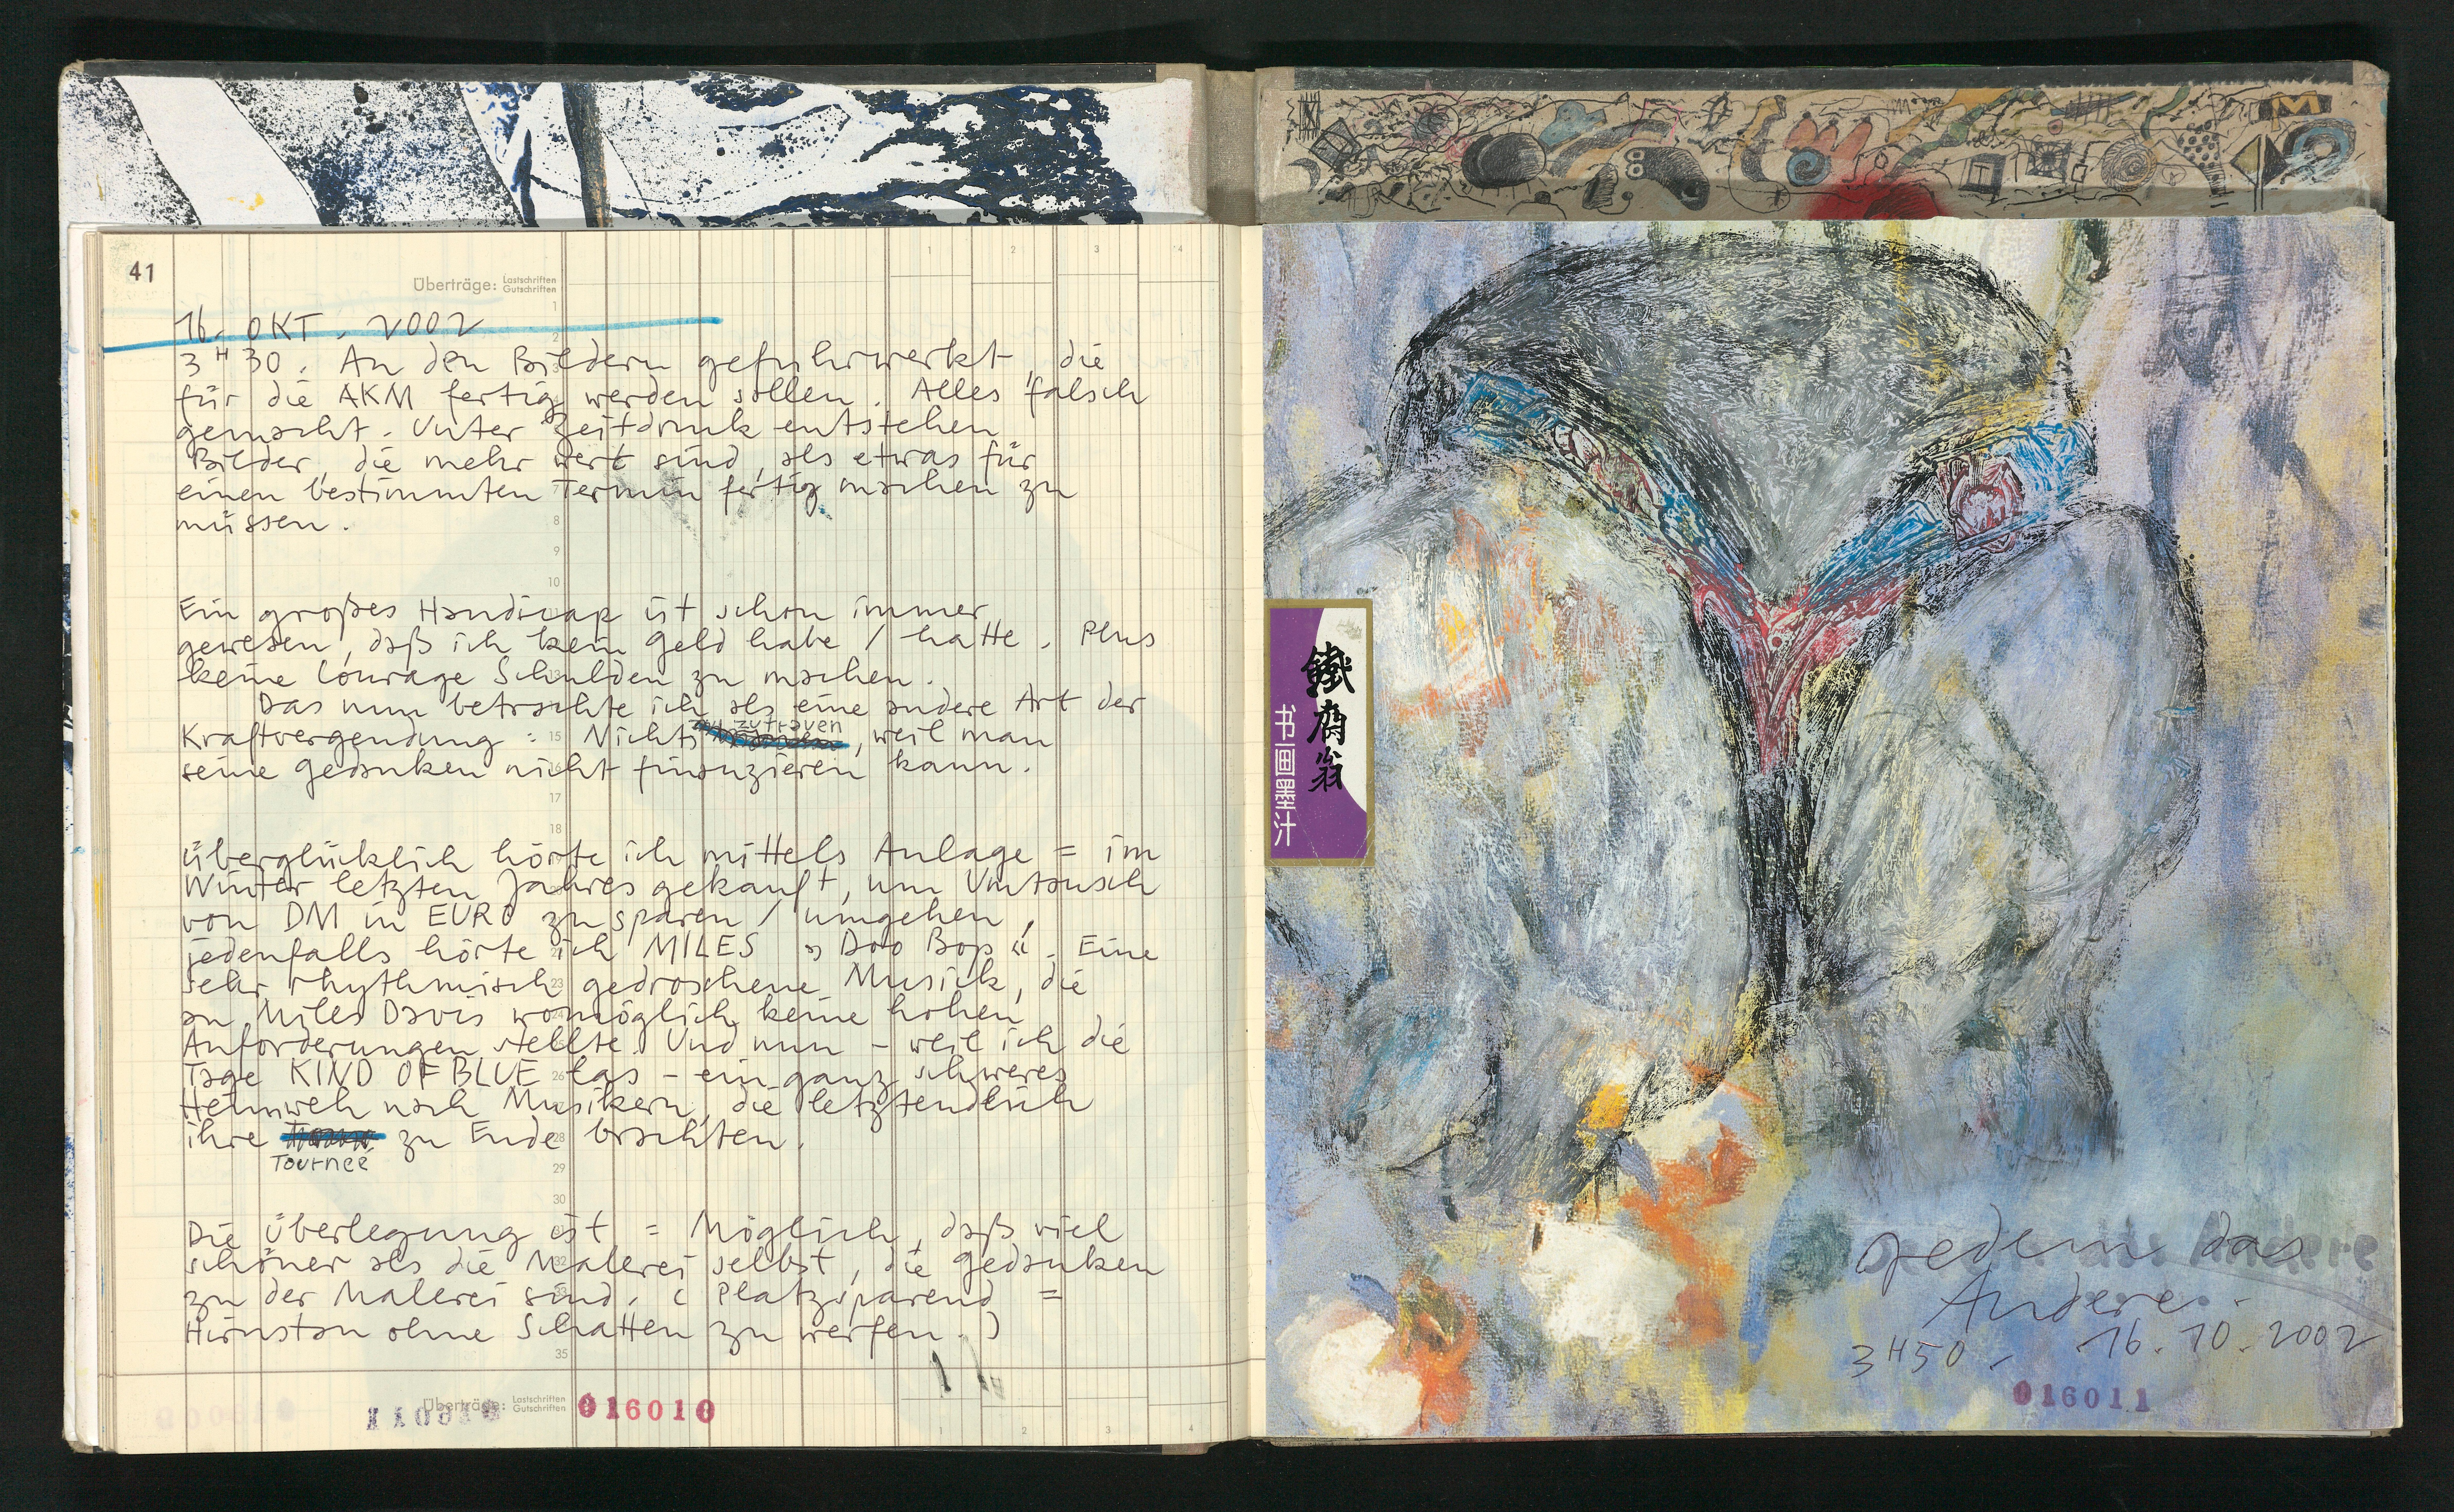 41
Überträge: Lastschriften
Gutschriften
1 2 3 4
16. OKT. 2002
3 H 30. An den Bildern gefuhrwerkt, die
für die AKM fertig werden sollen. Alles falsch
gemacht. Unter Zeitdruck entstehen
Bilder, die mehr wert sind, als etwas für
einen bestimmten Termin fertig machen zu
müssen.
Ein großes Handicap ist schon immer
gewesen, daß ich kein Geld habe / hatte. Plus
keine Courage Schulden zu machen.
Das nun betrachte ich als eine andere Art der
Kraftvergendung: Nichts zuzutrauen, weil man
seine Gedanken nicht finanzieren kann.
Überglücklich hörte ich mittels Anlage = im
Winter letzten Jahres gekauft, um Umtausch
von DM in EURO zu sparen / umgehen,
jedenfalls hörte ich MILES »Doo Bop«. Eine
sehr rhythmisch gedroschene Musick, die
an Miles Davis womöglich keine hohen
Anforderungen stellte. Und nun – weil ich die
Tage KIND OF BLUE las – ein ganz schweres
Heimweh nach Musikern, die letztendlich
ihre zu Ende brachten.
Tourneé
Die Überlegung ist = Möglich, daß viel
schöner als die Malerei selbst, die Gedanken
zu der Malerei sind. (Platzsparend =
Hirnstau ohne Schatten zu werfen.)
35
Überträge: Lastschriften
Gutschriften
016010
1 2 3 4
鐵齋翁
书画墨汁
Jedem das
Andere.
3 H 50. 16.10.2002
016011